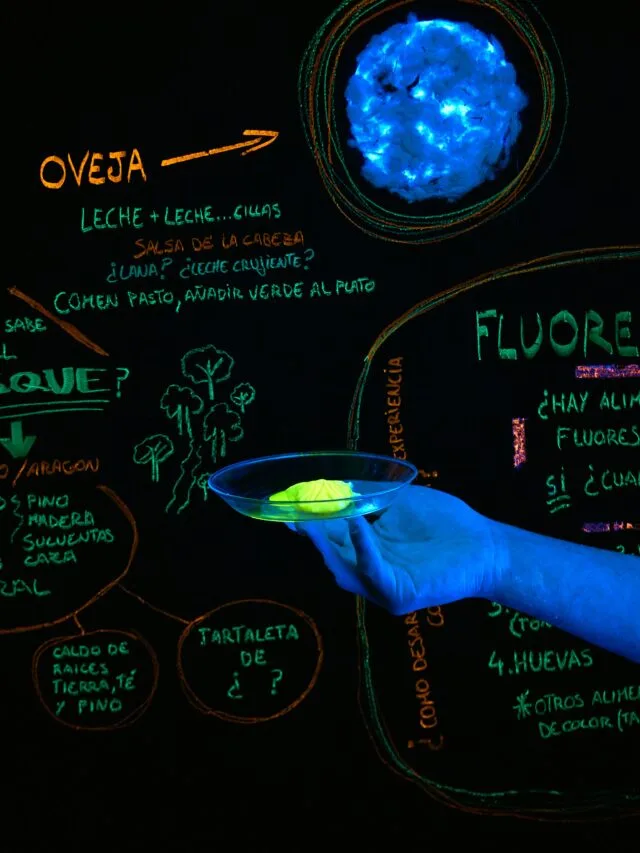 OVEJA
LECHE + LECHE...CILLAS
SALSA DE LA CABEZA
¿LANA? ¿LECHE CRUJIENTE?
COMEN PASTO, AÑADIR VERDE AL PLATO
SABE
SQUE?
O/ARAGON
PINO
MADERA
SUCULENTAS
CAZA
RAL
CALDO DE
RAICES
TIERRA, TÉ
Y PINO
TARTALETA
DE
¿ ?
FLUORE
¿HAY ALIM
FLUORES
SÍ ¿CUA
4. HUEVAS
* OTROS ALIME
DE COLOR (TA
¿COMO DESAR
XPERIENCIA